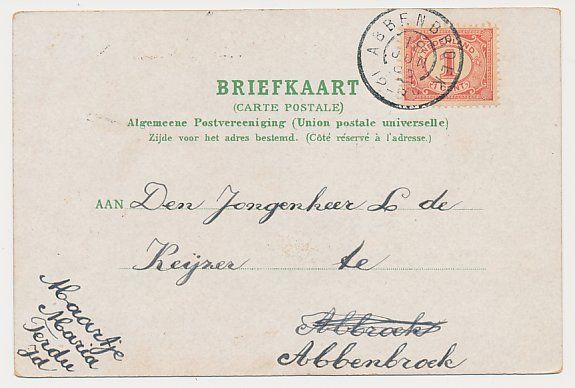 ABBENBROEK
NEDERLAND
1
BRIEFKAART
(CARTE POSTALE)
Algemeene Postvereeniging (Union postale universelle)
Zijde voor het adres bestemd. (Côté réservé à l'adresse.)
AAN Den Jongenheer L de
Keijzer te
Abbroek
Abbenbroek
Maartje
Maria